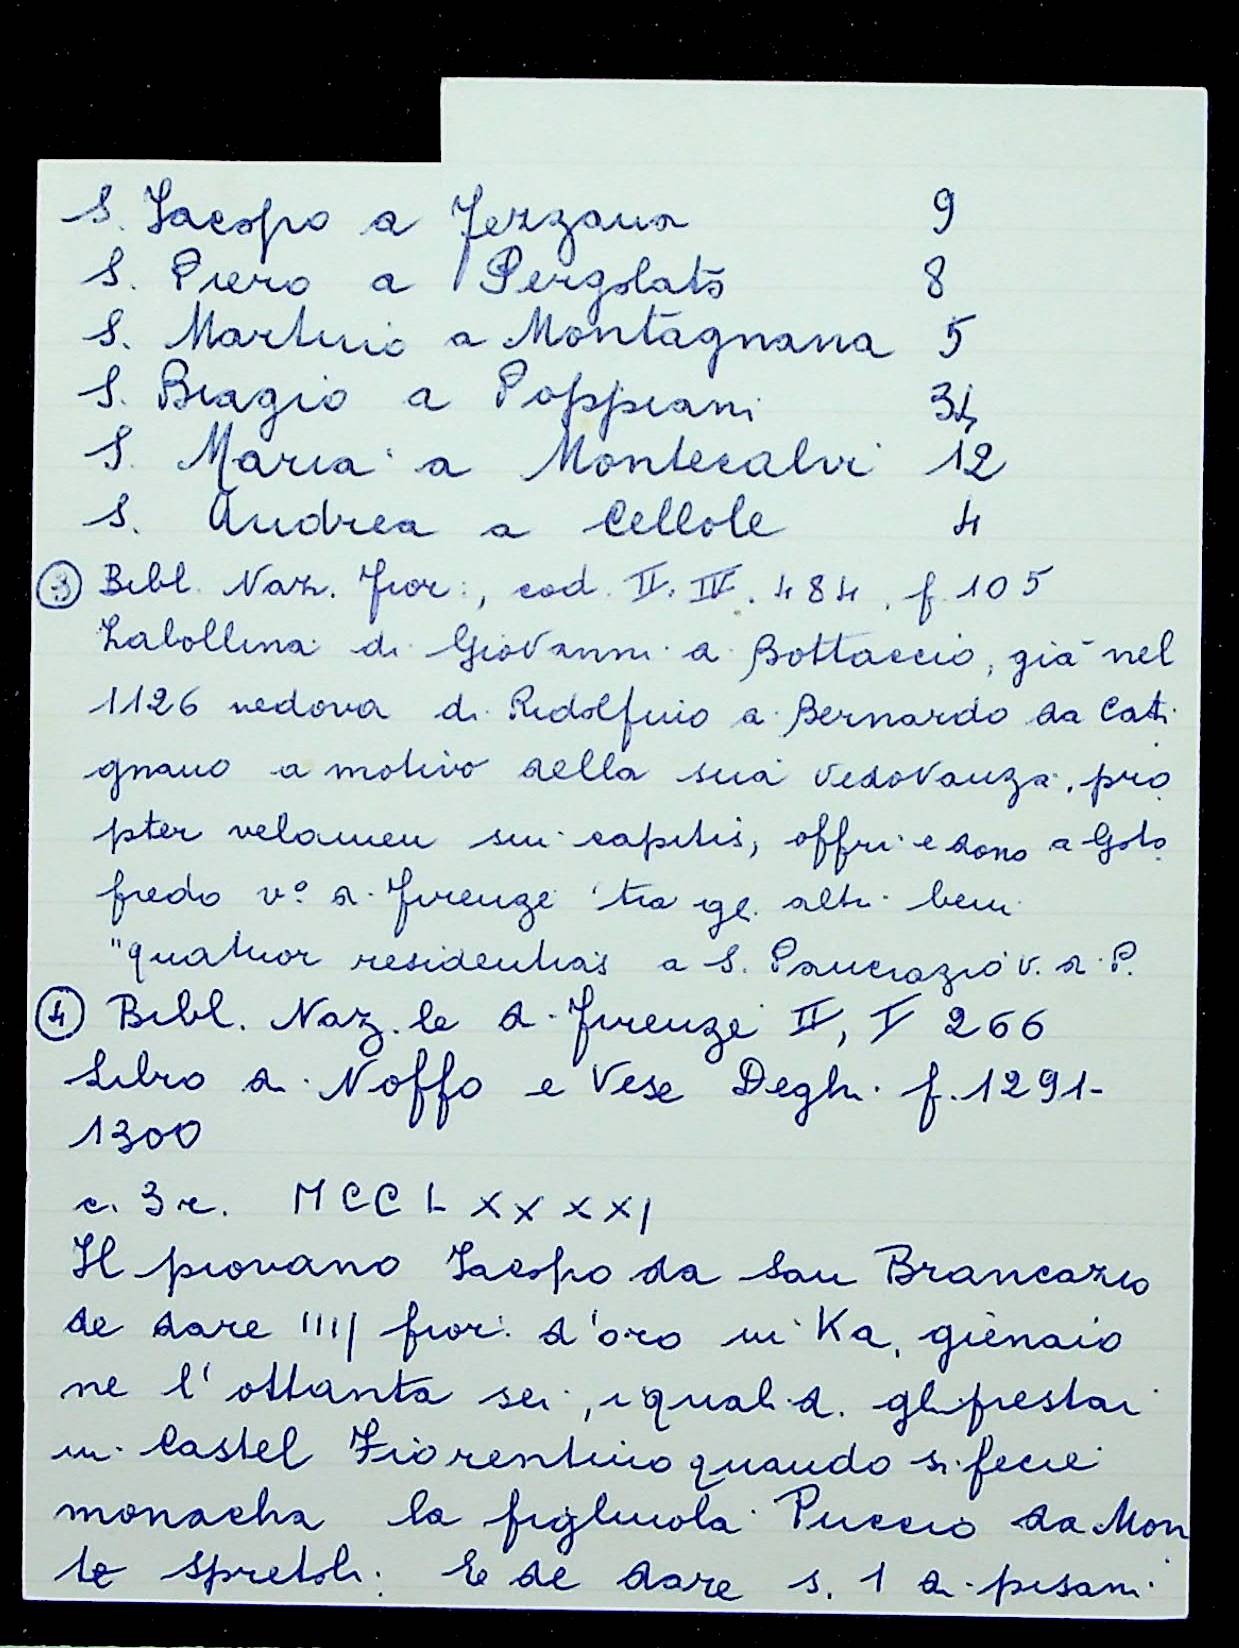 S. Iacopo a Jerzana 9
S. Piero a Pergolato 8
S. Martino a Montagnana 5
S. Biagio a Poppiani 34
S. Maria a Montecalvi 12
S. Andrea a Cellole 4
③ Bibl. Naz. Fior:, cod. II. IV. 484. f. 105
Labollina di Giovanni a Bottaccio, già nel
1126 vedova di Ridolfino a Bernardo da Cati
gnano a motivo della sua vedovanza, pro
pter velamen sui capitis, offri e dono a Goto
fredo v° di Firenze tra gli altri beni
"quatuor residentias a S. Pancrazio v. d. P.
④ Bibl. Naz.le di Firenze II, V 266
Libro di Noffo e Vese Deghi f. 1291-
1300
c. 3 r. MCCLXXXXI
Il piovano Iacopo da San Brancazio
de dare IIII fiori d'oro in Ka. gienaio
ne l'ottanta sei, i quali d. gli prestai
in Castel Fiorentino quando si fecie
monacha la figliuola Puccio da Mon
te Spretoli. E de dare s. 1 di pisani